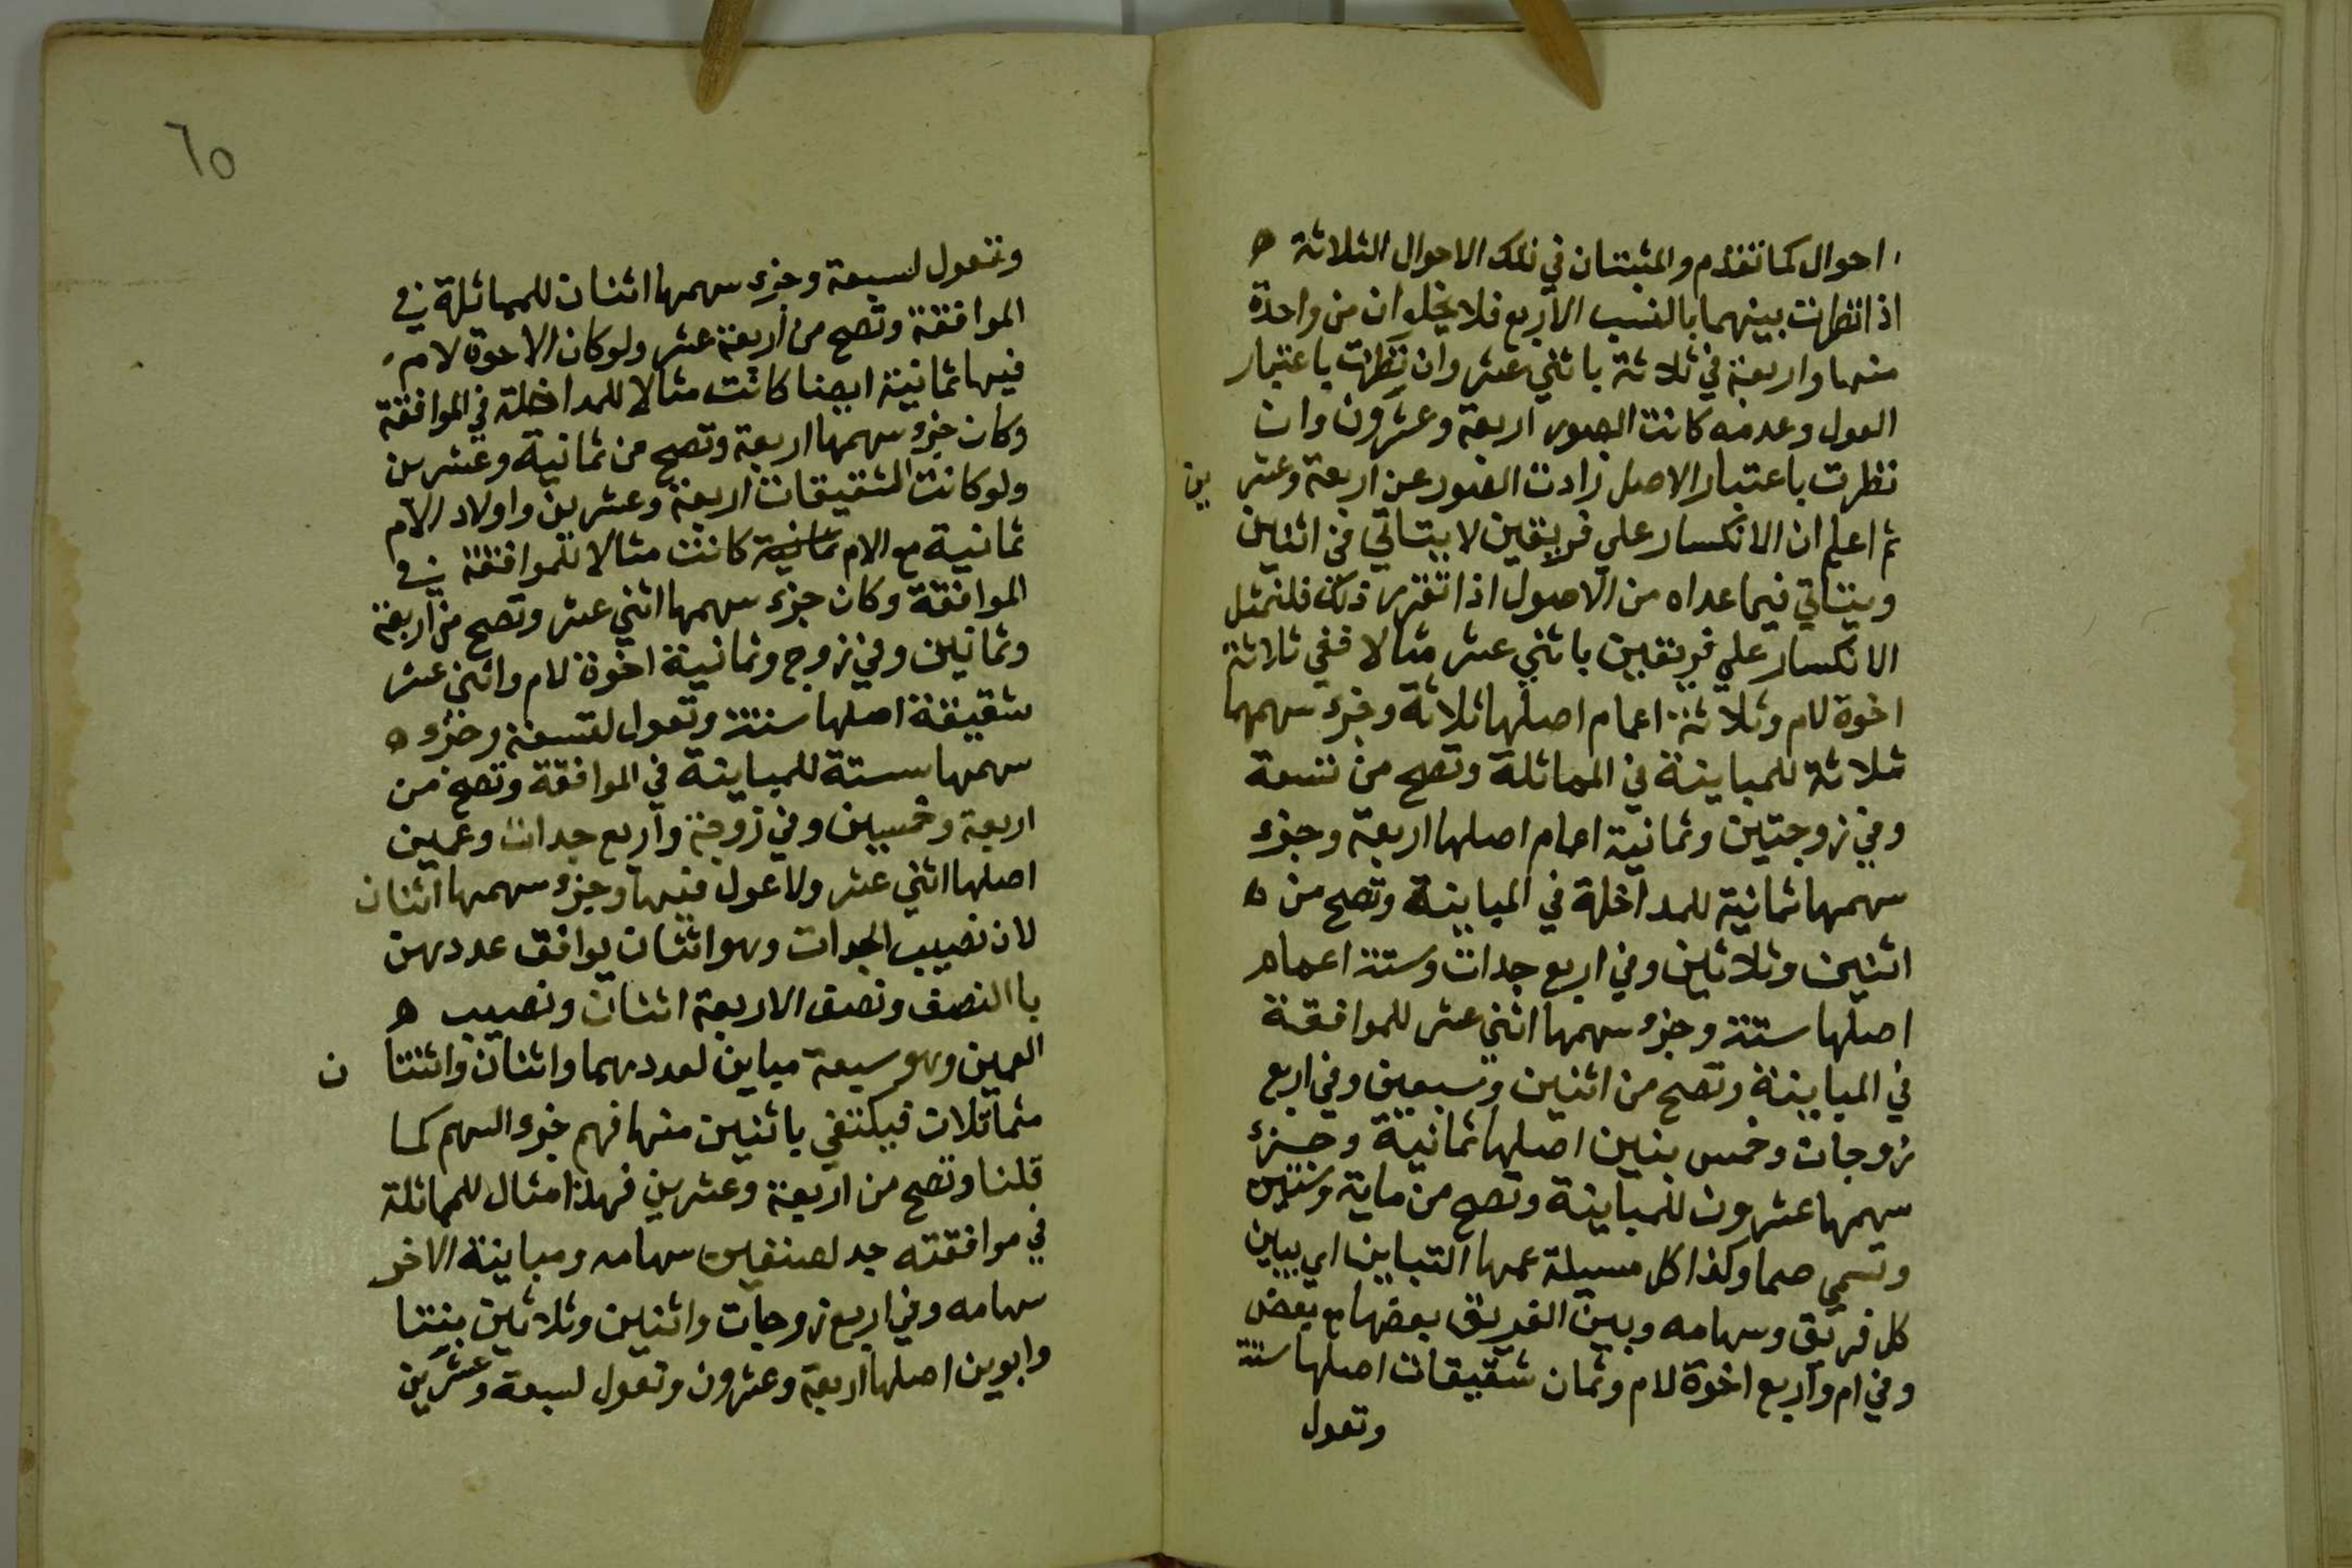 احوال كما تقدم والمثبتان في تلك الاحوال الثلاثة ه
اذا نظرت بينهما بالنسب الاربع فلا يخلوان من واحدة
منها واربعة في ثلاثة باثني عشر وان نظرت باعتبار
العول وعدمه كانت الصور اربعة وعشرون وان
نظرت باعتبار الاصل زادت الصور عن اربعة وعشرين
ثم اعلم ان الانكسار علي فريقين لا يتاتي في اثنين
ويتاتي فيما عداه من الاصول اذا تقرر ذلك فلنمثل
الانكسار علي فريقين باثني عشر مثالا ففي ثلاثة
اخوة لام وثلاثة اعمام اصلها ثلاثة وجزء سهمها
ثلاثة للمباينة في المماثلة وتصح من تسعة
وفي زوجتين وثمانية اعمام اصلها اربعة وجزء
سهمها ثمانية للمداخلة في المباينة وتصح من ه
اثنين وثلاثين وفي اربع جدات وستة اعمام
اصلها ستة وجزء سهمها اثني عشر للموافقة
في المباينة وتصح من اثنين وسبعين وفي اربع
زوجات وخمس بنين اصلها ثمانية وجزء
سهمها عشرون للمباينة وتصح من ماية وستين
وتسمي صما وكذا كل مسيلة عمها التباين اي بباين
كل فريق وسهامه وبين الفريق بعضها مع بعض
وفي ام واربع اخوة لام وثمان شقيقات اصلها ستة
وتعول
٦٥
وتعول لسبعة وجزء سهمها اثنان للمماثلة في
الموافقة وتصح من اربعة عشر ولو كان الاخوة لام
فيها ثمانية ايضا كانت مثالا للمداخلة في الموافقة
وكان جزء سهمها اربعة وتصح من ثمانية وعشرين
ولو كانت الشقيقات اربعة وعشرين واولاد الام
ثمانية مع الام ثمانية كانت مثالا للموافقة في
الموافقة وكان جزء سهمها اثني عشر وتصح من اربعة
وثمانين وفي زوج وثمانية اخوة لام واثني عشر
شقيقة اصلها ستة وتعول لتسعة وجزء ه
سهمها ستة للمباينة في الموافقة وتصح من
اربعة وخمسين وفي زوجة واربع جدات وعمين
اصلها اثني عشر ولا عول فيها وجزء سهمها اثنان
لان نصيب الجدات وهو اثنان يوافق عددهن
باالنصف ونصف الاربعة اثنان ونصيب ه
العمين وهو سبعة مباين لعددهما واثنان واثنتان
متماثلات فيكتفي باثنين منها فهم جزء السهم كما
قلنا وتصح من اربعة وعشرين فهذا مثال للمماثلة
في موافقته حد لصنفين سهامه ومباينة الاخر
سهامه وفي اربع زوجات واثنين وثلاثين بنتا
وابوين اصلها اربعة وعشرون وتعول لسبعة وعشرين